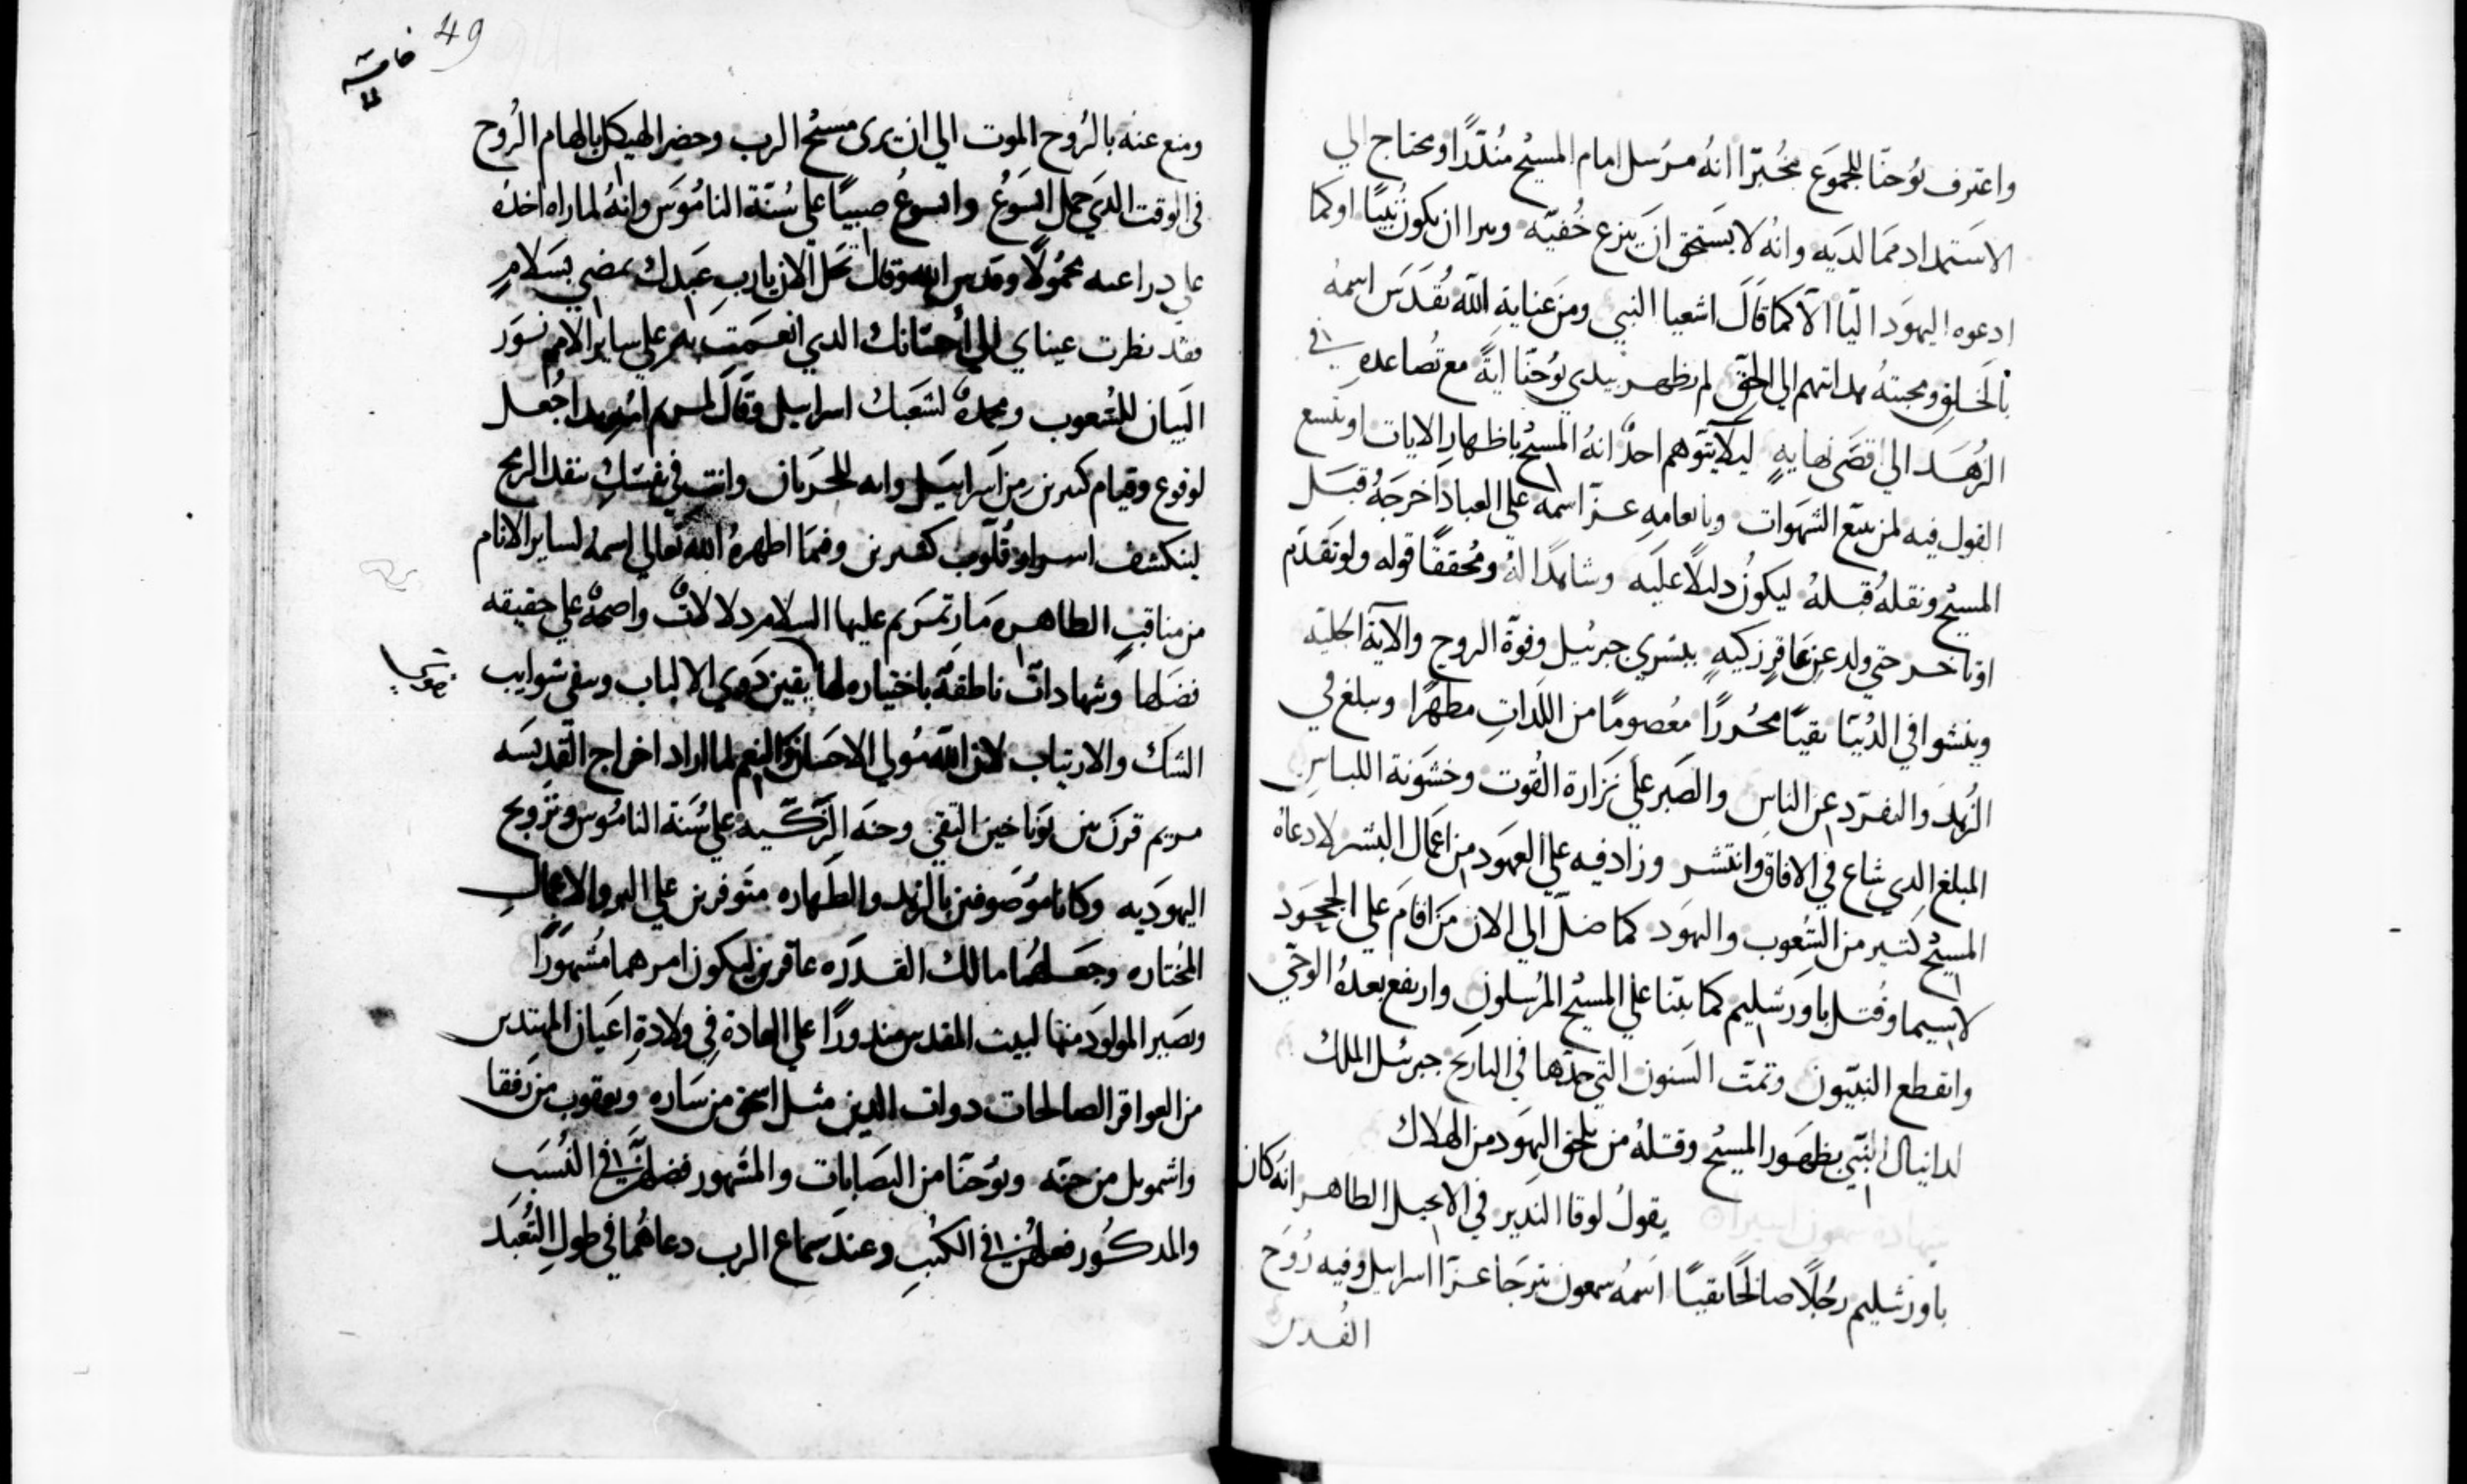 واعترف يوحنا للجموع مخبرا انه مرسل امام المسيح منذرا ومحتاج الي
الاستمداد مما لديه وانه لا يستحق ان ينزع خفيه وبرا ان يكون نبيا او كما
ادعوه اليهود اليا الا كما قال اشعيا النبي ومن عناية الله تقدس اسمه
بالخلق ومحبته هدايتهم الي الحق لم يظهر بيدي يوحنا اية مع تصاعده في
الزهد الي اقصي نهايه ليلا يتوهم احد انه المسيح باظهار الايات او يتسع
القول فيه لمن يتبع الشهوات وبانعامه عز اسمه علي العباد اخرجه قبل
المسيح ونقله قبله ليكون دليلا عليه وشاهدا له ومحققا قوله ولو تقدم
او تاخر حتي ولد من عاقر زكيه ببشري جبرئيل وقوة الروح والاية الجليه
وينشوا في الدنيا نقيا محررا معصوما من اللدات مطهرا ويبلغ في
الزهد والتفرد عن الناس والصبر علي نزارة القوت وخشونة اللباس
المبلغ الدي شاع في الافاق وانتشر وزاد فيه علي المعهود من اعمال البشر لادعاه
المسيح كتير من الشعوب واليهود كما ضل الي الان من اقام علي الجحود
لاسيما وقتل باورشليم كما بتنا علي المسيح المرسلون وارتفع بعده الوحي
وانقطع النبيون وتمت السنون التي حدها في التاريخ جبرئيل الملك
لدانيال النبي بظهور المسيح وقتله من يلحق اليهود من الهلاك
يقول لوقا الندير في الانجيل الطاهر انه كان
باورشليم رجلا صالحا تقيا اسمه سمعون يترجا عزا اسرايل وفيه روح
القدس
49
ومنع عنه بالروح الموت الي ان يري مسيح الرب وحضر الهيكل بالهام الروح
في الوقت الدي حمل ايسوع وايسوع صبيا علي سنة الناموس وانه لما راه اخده
علي دراعيه محمولا وقدس الله وقال تحل الان يا رب عبدك يمضي بسلام
فقد نظرت عيناي الي احنانك الدي انعمت به علي ساير الامم نور
البيان للشعوب ومجده لشعبك اسرايل وقال لمريم امه هدا جعل
لوقوع وقيام كتيرين من اسراييل وايه للحربان وانت في نفسك ينفد الرمح
لينكشف اسرار قلوب كتيرين ومما اظهره الله تعالي اسمه لساير الانام
من مناقب الطاهره مارتمريم عليها السلام دلالات واضحه علي حقيقه
فضلها وشهادات ناطقه باختياره لها يقين دوي الالباب وينفي شوايب
الشك والارتياب لان الله مولي الاحسان والنعم لما اراد اخراج القديسه
مريم قرن بين يوناخين التقي وحنه الزكيه علي سنة الناموس وتزويج
اليهوديه وكانا موصوفين بالزهد والطهاره متوفرين علي البر والاعمال
المختاره وجعلهما مالك القدره عاقرين ليكون امرهما مشهورا
ويصير المولود منهما لبيت المقدس مندورا علي العادة في ولادة اعيان المهتدين
من العواقر الصالحات دوات الدين مثل اسحق من ساره ويعقوب من رفقا
واشمويل من حنه ويوحنا من اليصابات والمشهور فضلهن في النسب
والمدكور فعلهن في الكتب وعند سماع الرب دعاهما في طول التعبد